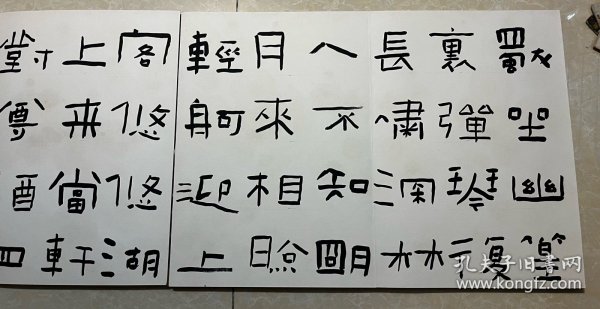 獨坐幽篁
裏彈琴復
長嘯深林
人不知朙
月來相照
輕舸迎上
客悠悠湖
上来當軒
對尊酒四
孔夫子旧书网
www.kongfz.com